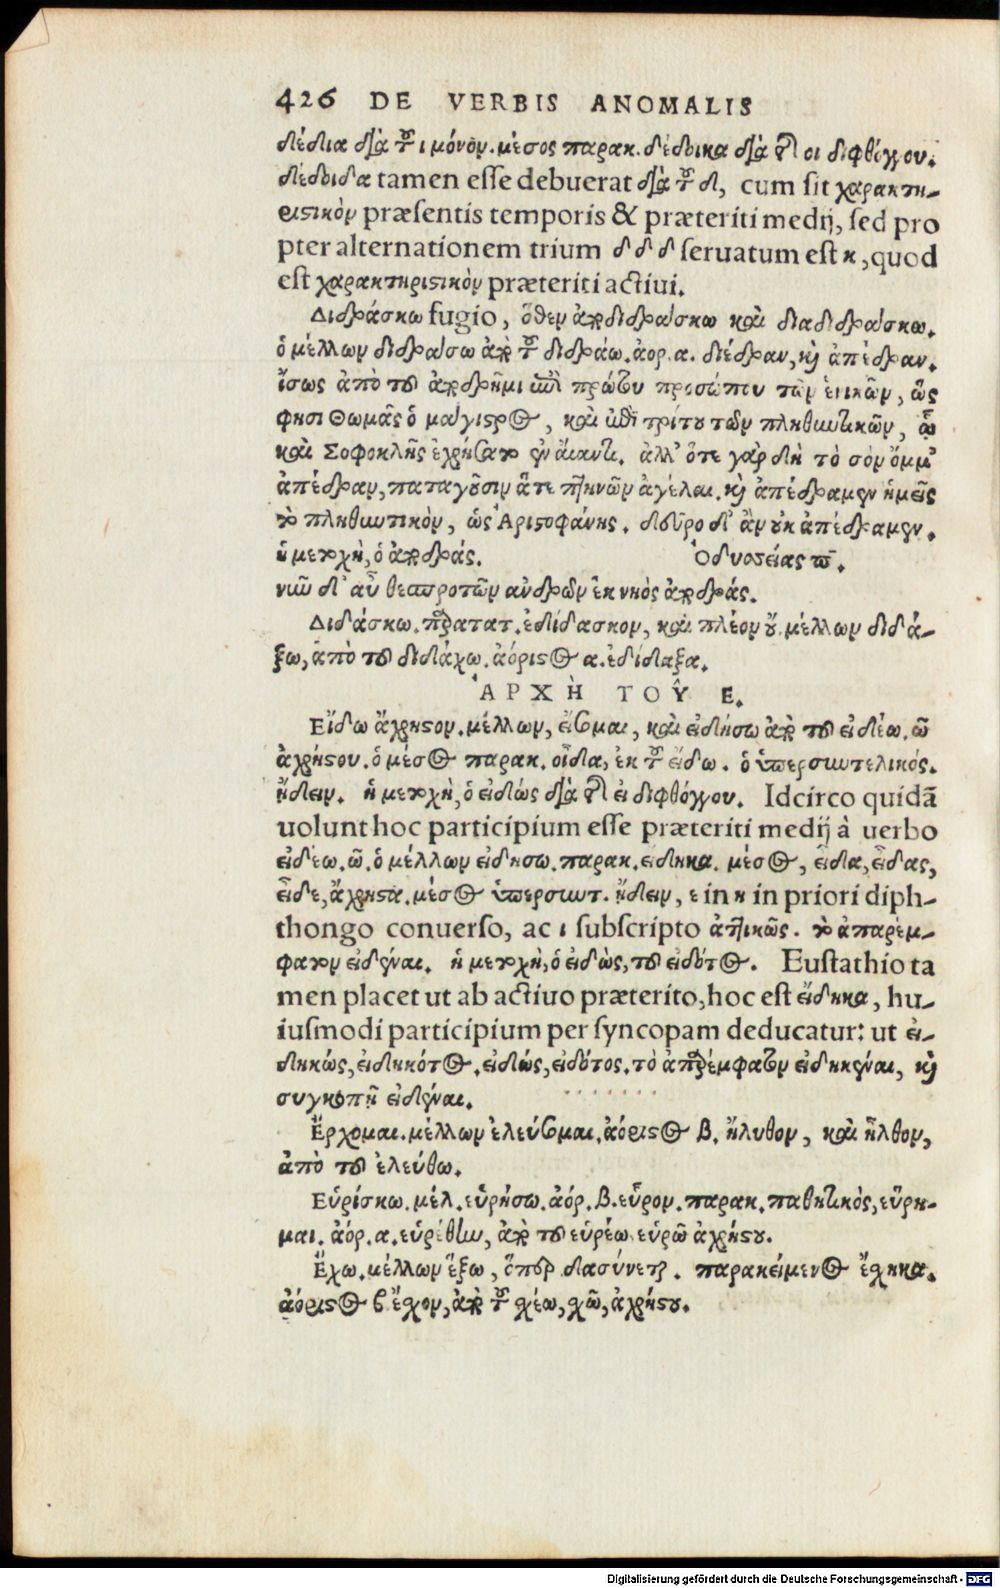 426 DE VERBIS ANOMALIS
δέδια διὰ τοῦ ι μόνον. μέσος παρακ. δέδοικα διὰ τῆς οι διφθόγγου.
δέδοιδα tamen esse debuerat διὰ τοῦ δ, cum sit χαρακτη-
ριστικὸν præsentis temporis & præteriti medij, sed pro
pter alternationem trium δ δ δ seruatum est κ, quod
est χαρακτηριστικὸν præteriti actiui.
Διδράσκω fugio, ὅθεν ἀποδιδράσκω καὶ διαδιδράσκω.
ὁ μέλλων διδράσω ἀπὸ τοῦ διδράω. ἀορ. α. διέδραν, καὶ ἀπέδραν.
ἴσως ἀπὸ τοῦ ἀποδρῆμι ἐπὶ πρώτου προσώπου τῶν ἑνικῶν, ὥς
φησι Θωμᾶς ὁ μάγιστρος, καὶ ἐπὶ τρίτου τῶν πληθυντικῶν, ᾧ
καὶ Σοφοκλῆς ἐχρήσατο ἐν αἴαντι. ἀλλ' ὅτε γὰρ δὴ τὸ σὸν ὄμμ'
ἀπέδραν, παταγοῦσιν ἅτε πτηνῶν ἀγέλαι. καὶ ἀπέδραμεν ἡμεῖς
τὸ πληθυντικὸν, ὡς Ἀριστοφάνης. δεῦρο δ' ἂν οὐκ ἀπέδραμεν.
ἡ μετοχὴ, ὁ ἀποδράς. Ὀδυσσείας π.
νῦν δ' αὖ θεσπρωτῶν ἀνδρῶν ἐκ νηὸς ἀποδράς.
Διδάσκω. παρατατ. ἐδίδασκον, καὶ πλέον οὔ. μέλλων διδά-
ξω, ἀπὸ τοῦ διδάχω. ἀόριστος α. ἐδίδαξα.
ἈΡΧῊ ΤΟΥ͂ Ε.
Εἴδω ἄχρηστον. μέλλων, εἴσομαι, καὶ εἰδήσω ἀπὸ τοῦ εἰδέω. ῶ
ἀχρήστου. ὁ μέσος παρακ. οἶδα, ἐκ τοῦ εἴδω. ὁ ὑπερσυντελικός.
ᾔδειν. ἡ μετοχὴ, ὁ εἰδὼς διὰ τῆς ει διφθόγγου. Idcirco quidã
uolunt hoc participium esse præteriti medij à uerbo
εἰδέω. ῶ. ὁ μέλλων εἰδήσω. παρακ. εἴδηκα. μέσος, εἶδα, εἶδας,
εἶδε, ἄχρηστα. μέσος ὑπερσυντ. ᾔδειν, ε in η in priori diph-
thongo conuerso, ac ι subscripto ἀττικῶς. τὸ ἀπαρέμ-
φατον εἰδέναι. ἡ μετοχὴ, ὁ εἰδὼς, τοῦ εἰδότος. Eustathio ta
men placet ut ab actiuo præterito, hoc est εἴδηκα, hu-
iusmodi participium per syncopam deducatur: ut εἰ-
δηκώς, εἰδηκότος. εἰδώς, εἰδότος. τὸ ἀπαρέμφατον εἰδηκέναι, καὶ
συγκοπῇ εἰδέναι.
Ἔρχομαι. μέλλων ἐλεύσομαι. ἀόριστος β. ἤλυθον, καὶ ἦλθον,
ἀπὸ τοῦ ἐλεύθω.
Εὑρίσκω. μέλ. εὑρήσω. ἀόρ. β. εὗρον. παρακ. παθητικὸς, εὕρη-
μαι. ἀόρ. α. εὑρέθην, ἀπὸ τοῦ εὑρέω. εὑρῶ ἀχρήστου.
Ἔχω. μέλλων ἕξω, ὅπερ δασύνεται. παρακείμενος ἔσχηκα.
ἀόριστος β ἔσχον, ἀπὸ τοῦ σχέω, σχῶ, ἀχρήστου.
Digitalisierung gefördert durch die Deutsche Forschungsgemeinschaft - DFG